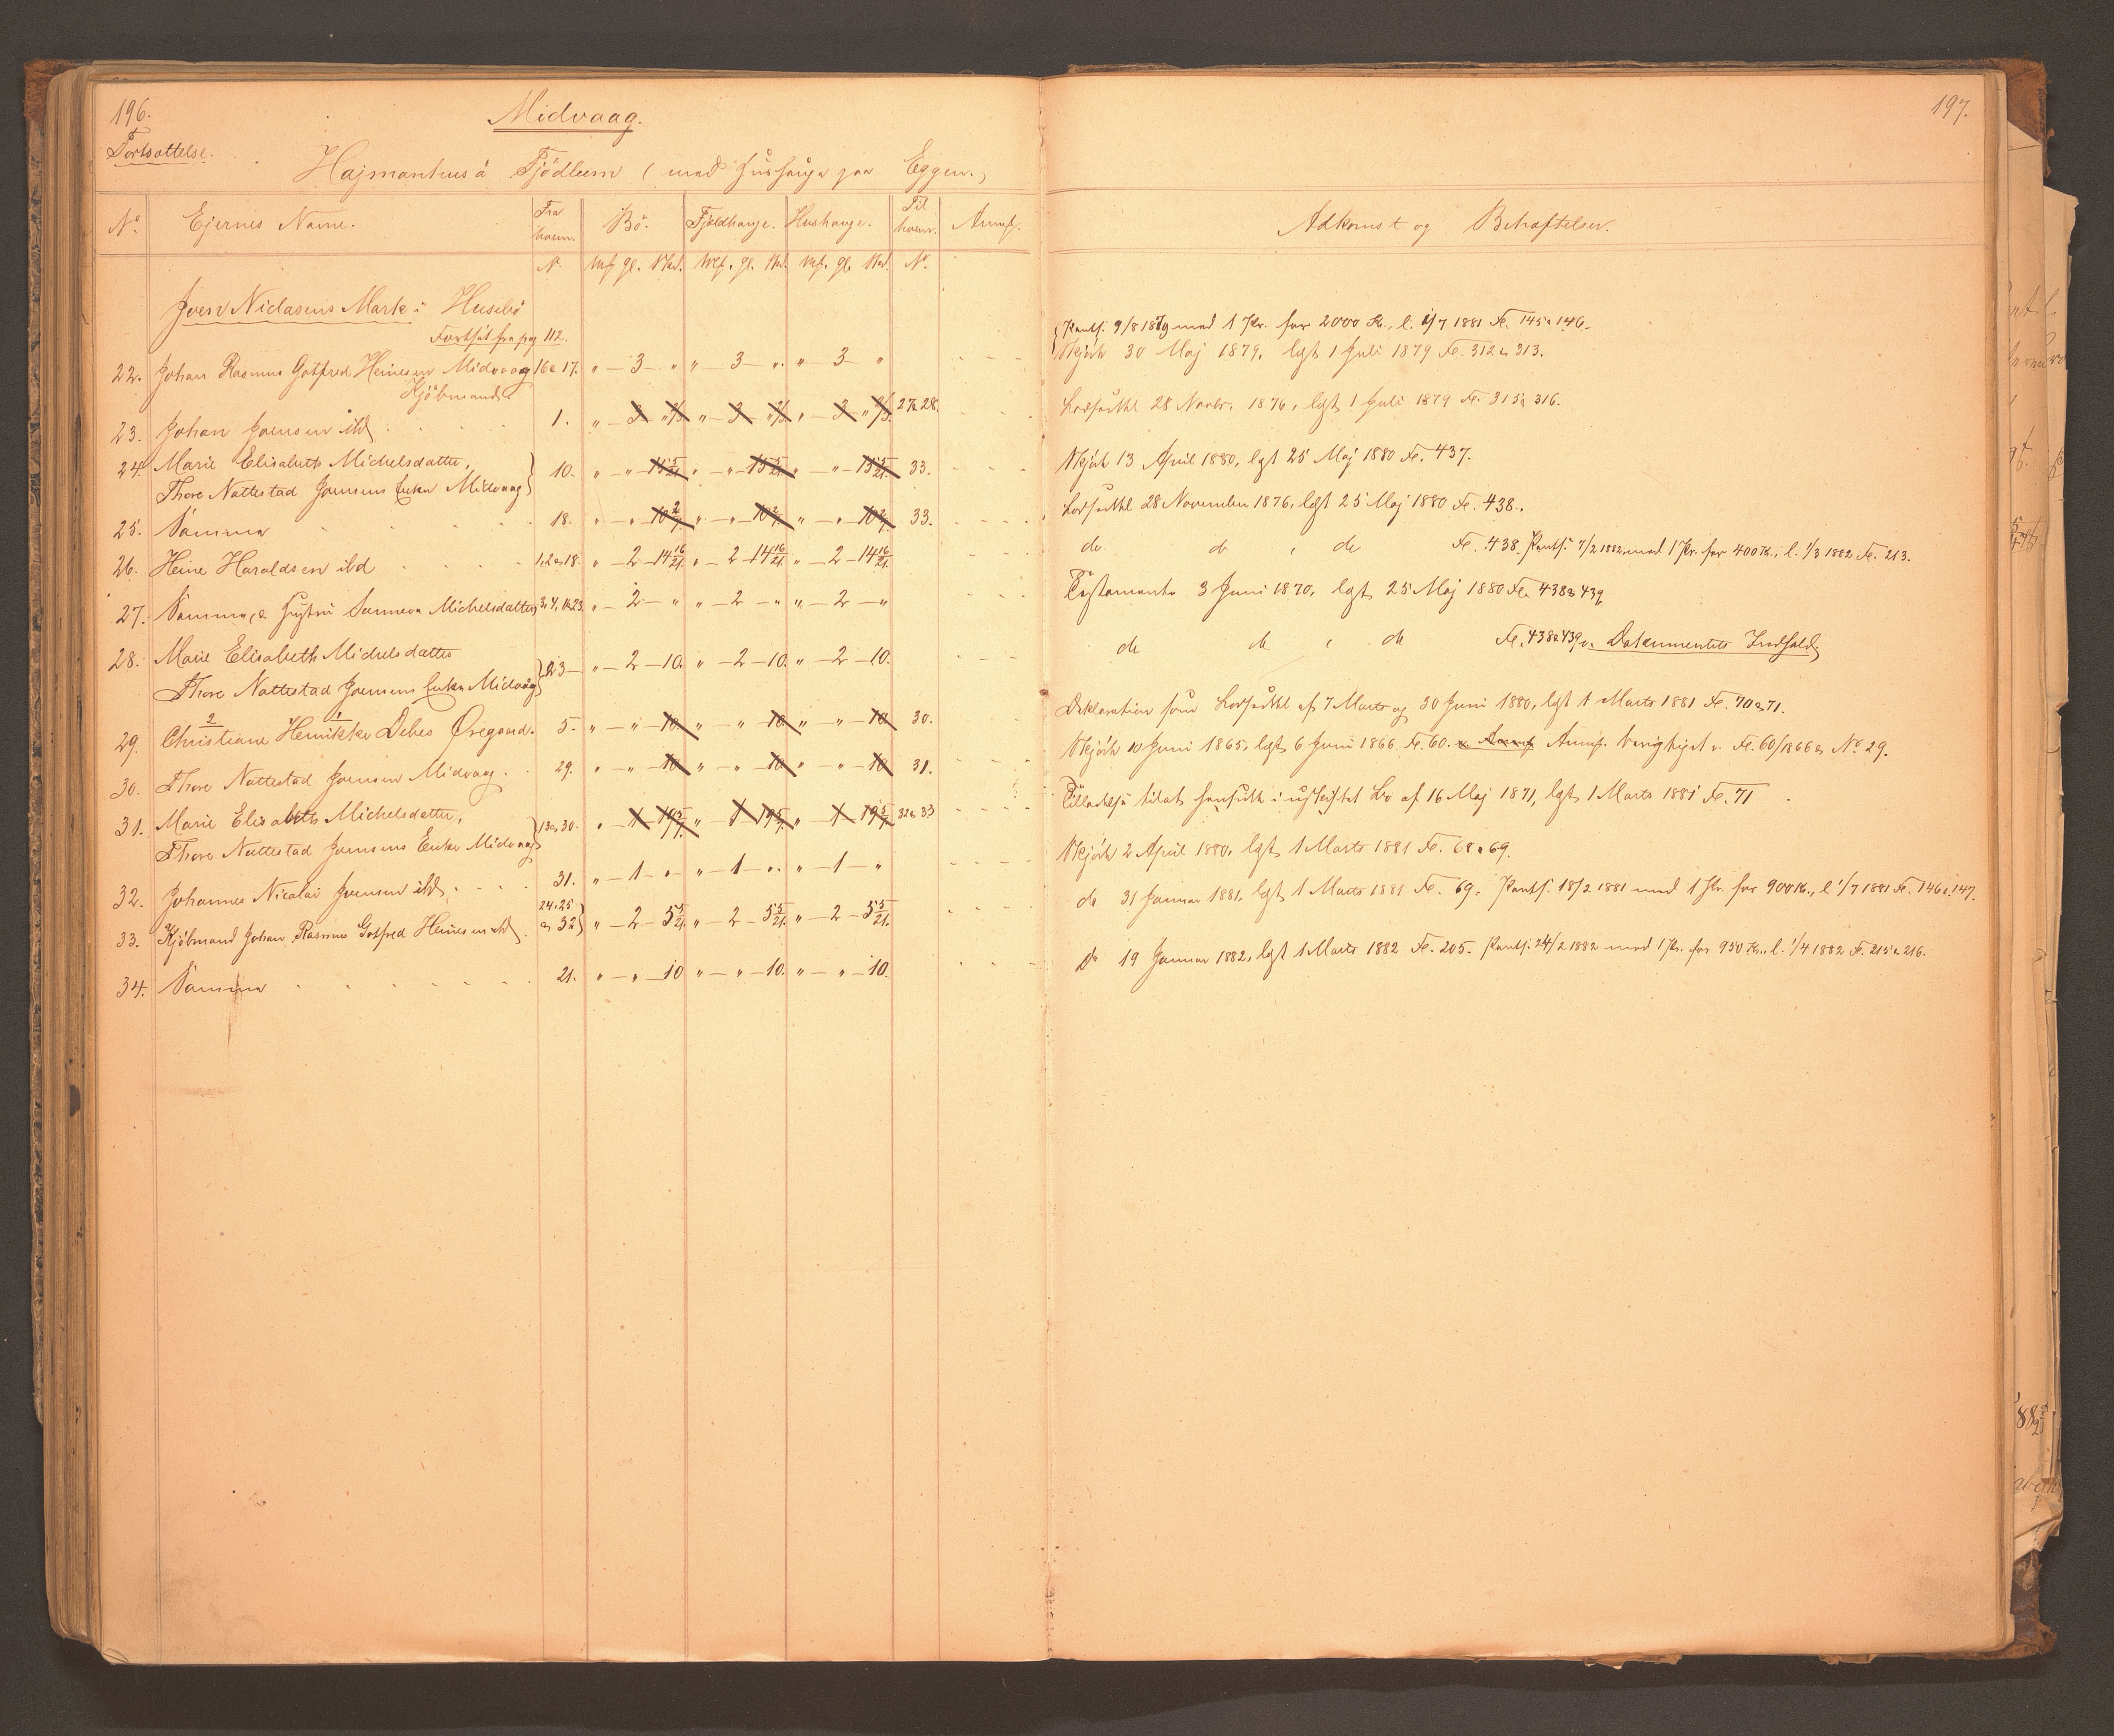 196.
Midvaag.
197.
Fortsættelse.
Hajmanhusa Fjödlum (med Hushauge paa Eggen.)
No. Ejernes Navne. Fra hvem. Bö. Fjeldhauge. Hushauge. Til hvem. Anmk. Adkomst og Behæftelser.
No. Mk. Gl. Skd. Mk. Gl. Skd. Mk. Gl. Skd. No.
Joen Niclasens Mark i Husebö
Fortsat fra pag 112.
Pants. 9/8 1879 med 1 Pr. for 2000 Kr., l. 1/7 1881 Fe. 145 & 146.
22. Johan Rasmus Gotfred Heinesen Midvaag 16 & 17. " — 3 — " " — 3 — " " — 3 " Skjöde 30 Maj 1879, lgst 1 Juli 1879 Fe. 312 & 313.
Kjöbmand
23. Johan Joensen ibd 1. " — 3 " 2/3 " — 3 " 2/3 " — 3 " 2/3 27 & 28. 28 Novbr. 1876, lgst 1 Juli 1879 Fe. 315 & 316.
24. Marie Elisabeth Michelsdatter,
Thore Nattestad Joensens Enke Midvaag } 10. " — " — 15 5/21 " — " — 15 5/21 " — " — 15 5/21 33. Skjöde 13 April 1880, lgst 25 Maj 1880 Fe. 437.
25. Samme 18. " — " 10 2/7 " — " 10 2/7 " — " 10 2/7 33. 28 November 1876, lgst 25 Maj 1880 Fe. 438.
26. Heine Haraldsen ibd 1, 2 & 18. " — 2 — 14 16/21 " — 2 — 14 16/21 " — 2 — 14 16/21 do do , do Fe. 438. Pants. 7/2 1882 med 1 Pr. for 400 Kr., l. 1/3 1882 Fe. 213.
27. Samme, & Hustru Sunneva Michelsdatter 3, 4, & 23 " — 2 — " " — 2 — " " — 2 — " Testamente 3 Juni 1870, lgst 25 Maj 1880 Fe. 438 & 439
28. Marie Elisabeth Michelsdatter
Thore Nattestad Joensens Enke Midvaag } 23 — " — 2 — 10. " — 2 — 10. " — 2 — 10. do do , do Fe. 438 & 439 v. Dokumentets Indhold.
29. Christiane Henrikke Debes Öregaard. 5. " — " — 10. " — " — 10 " — " — 10 30. Deklaration som af 7 Marts og 30 Juni 1880, lgst 1 Marts 1881 Fe. 70 & 71.
30. Thore Nattestad Joensen Midvaag. 29. " — " — 10 " — " — 10 " — " — 10 31. Skjöde 10 Juni 1865, lgst 6 Juni 1866 Fe. 60. v. Anmk Anmk. v. Fe. 60/1866 & No 29.
31. Marie Elisabeth Michelsdatter,
Thore Nattestad Joensens Enke Midvaag } 13 & 30. " — 1 — 19 5/7 " 1 — 19 5/7 " — 1 — 19 5/7 32 & 33 i uskiftet Bo af 16 Maj 1871, lgst 1 Marts 1881 Fe. 71
32. Johannes Nicolai Joensen ibd. 31. " — 1 — " " — 1 — " " — 1 — " Skjöde 2 April 1880, lgst 1 Marts 1881 Fe. 68 & 69.
33. Kjöbmand Johan Rasmus Gotfred Heinesen ibd. 24, 25 & 32 } " — 2 — 5 5/21 " — 2 — 5 5/21 " — 2 — 5 5/21 do 31 Januar 1881, lgst 1 Marts 1881 Fe. 69. Pants. 18/2 1881 med 1 Pr. for 900 Kr., l. 1/7 1881 Fe. 146 & 147.
34. Samme 21. " — " — 10 " — " — 10. " — " — 10. Do 19 Januar 1882, lgst 1 Marts 1882 Fe. 205. Pants. 24/2 1882 med 1 Pr. for 950 Kr., l. 1/4 1882 Fe. 215 & 216.